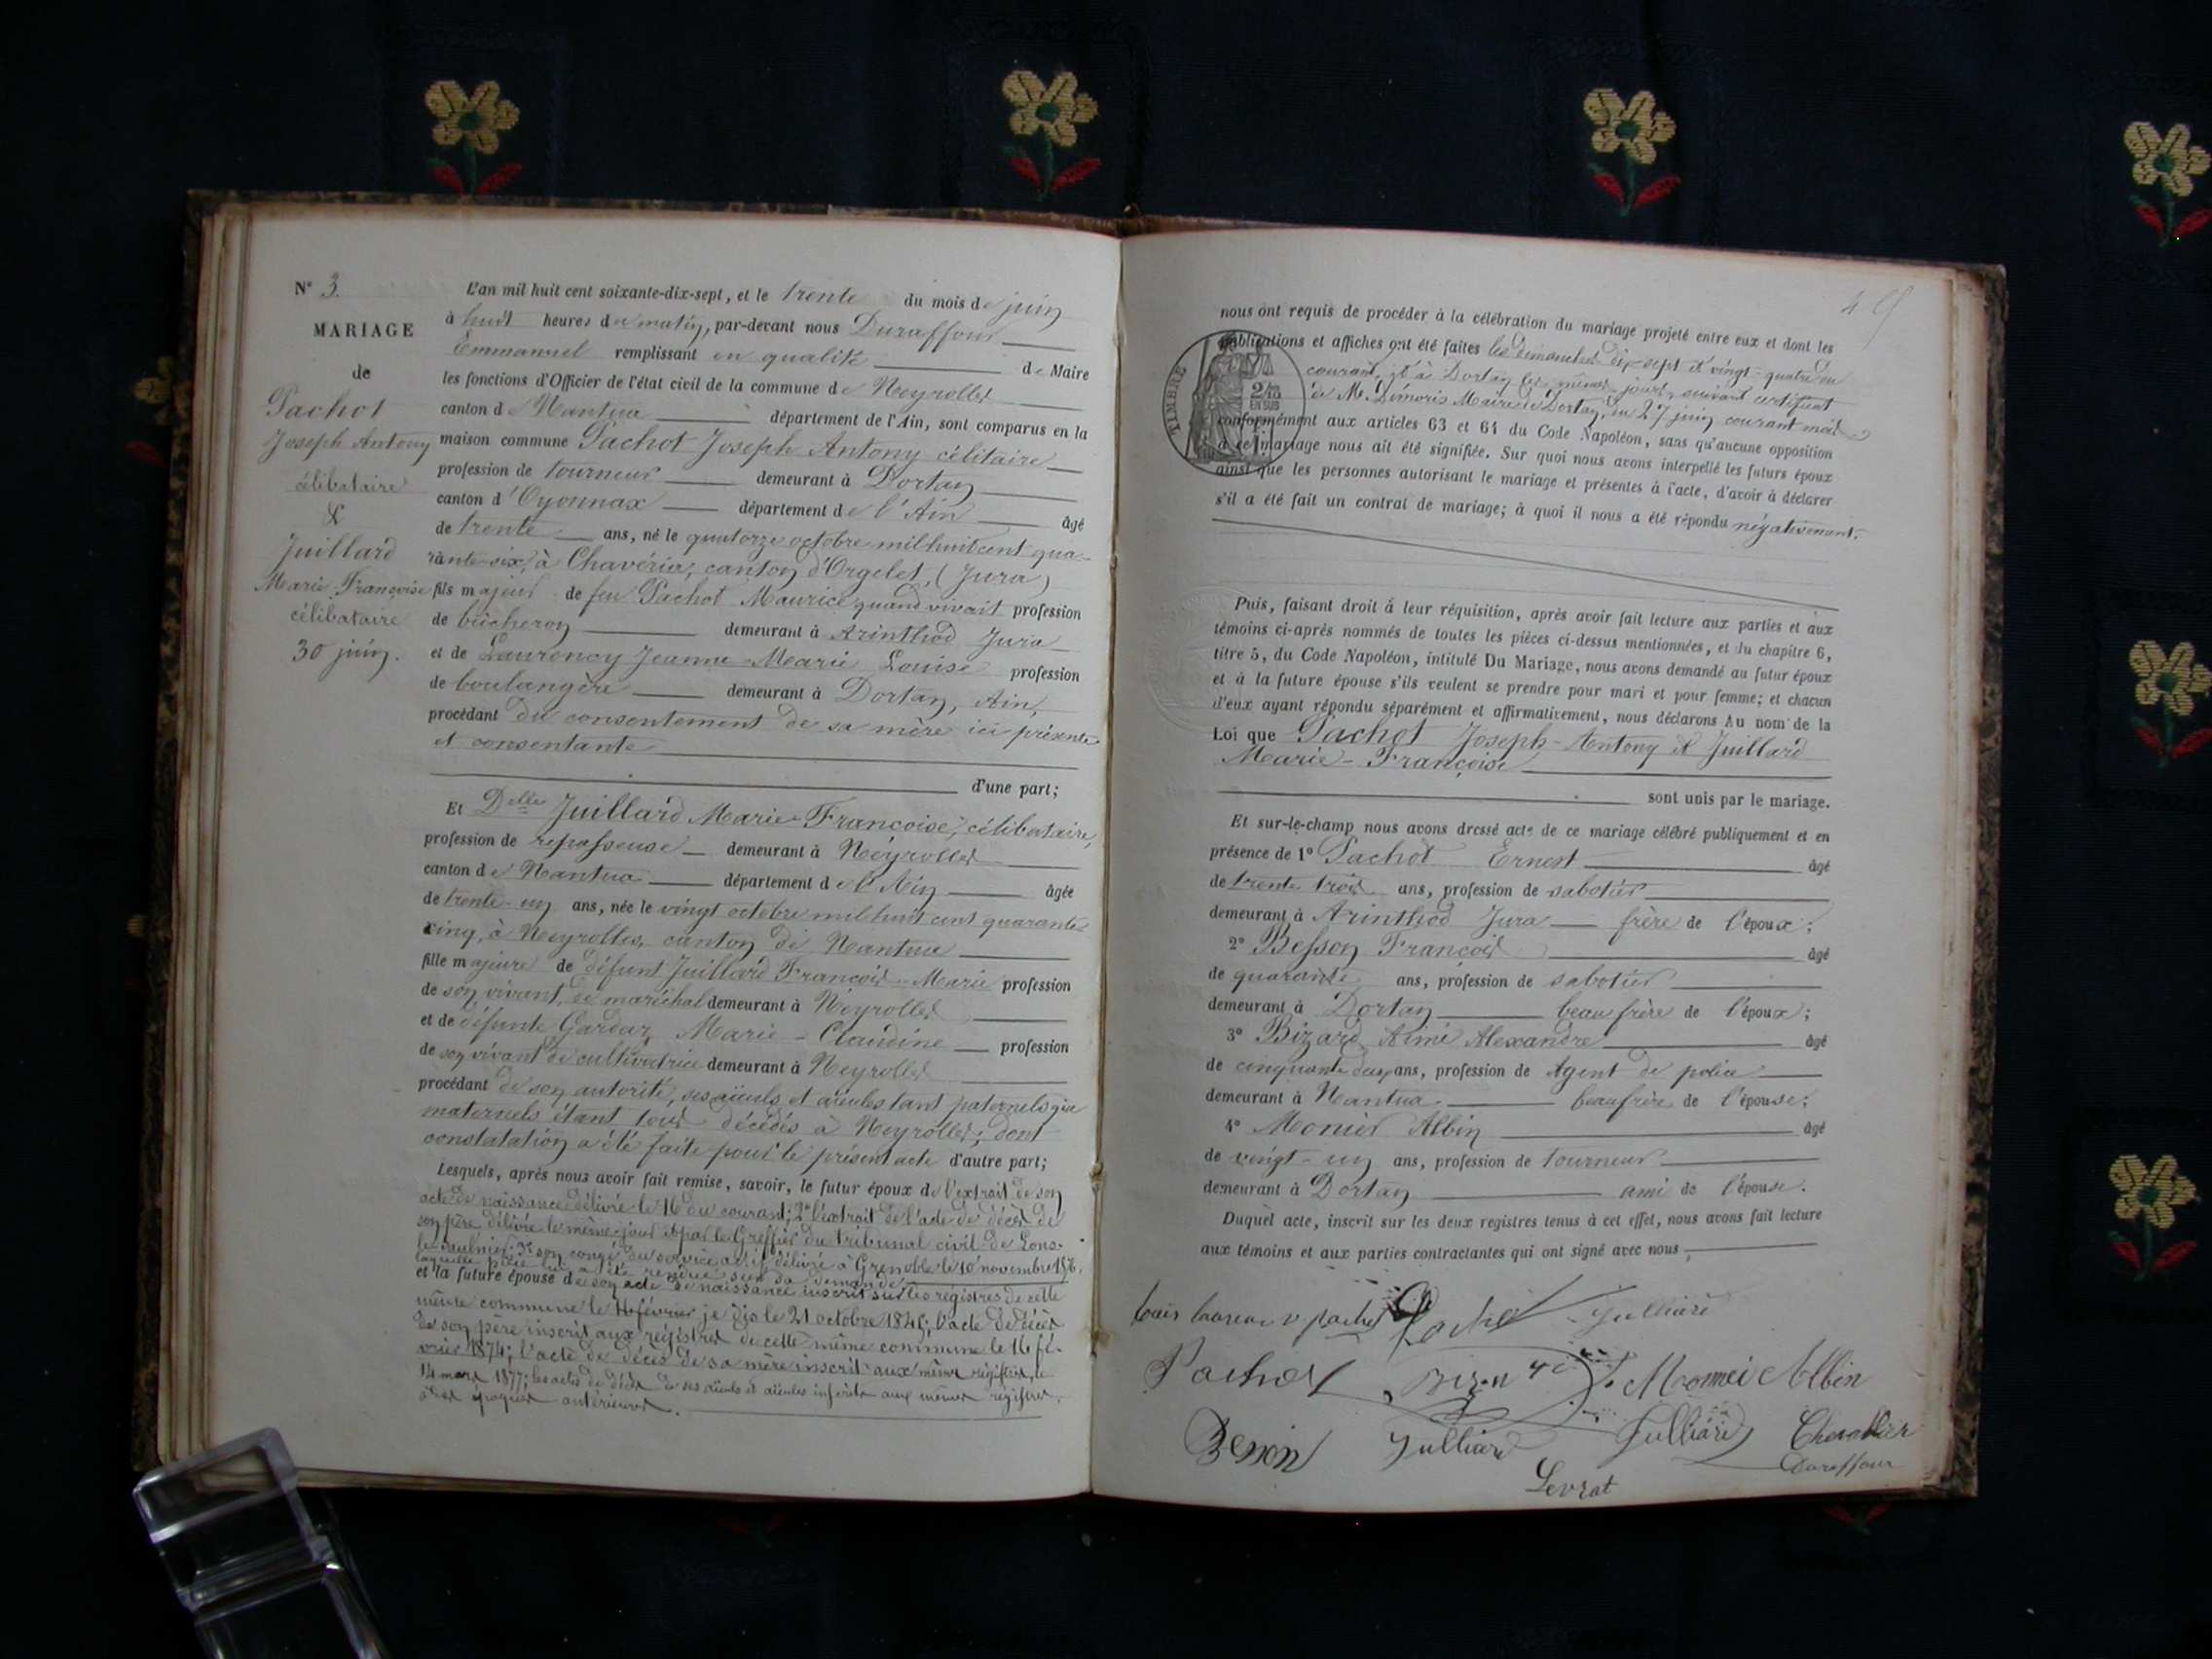 N° 3.
MARIAGE
de
Pachot
Joseph Antony
célibataire
&
Juillard
Marie Françoise
célibataire
30 juin.
L'an mil huit cent soixante-dix-sept, et le trente du mois de juin
à huit heures du matin, par-devant nous Duraffour
Emmanuel remplissant en qualité de Maire
les fonctions d'Officier de l'état civil de la commune de Neyrolles
canton de Nantua département de l'Ain, sont comparus en la
maison commune Pachot Joseph Antony célitaire
profession de tourneur demeurant à Dortan
canton d'Oyonnax département de l'Ain âgé
de trente ans, né le quatorze octobre mil huit cent qua-
rante-six, à Chavéria, canton d'Orgelet, (Jura)
fils majeur de feu Pachot Maurice quand vivait profession
de bûcheron demeurant à Arinthod Jura
et de Laurency Jeanne-Marie Louise profession
de boulangère demeurant à Dortan, Ain,
procédant du consentement de sa mère ici présente
et consentante
d'une part;
Et Delle Juillard Marie-Françoise, célibataire,
profession de repasseuse demeurant à Neyrolles
canton de Nantua département de l'Ain âgée
de trente-un ans, née le vingt octobre mil huit cent quarante-
cinq, à Neyrolles, canton de Nantua
fille majeure de défunt Juillard François-Marie profession
de son vivant, de maréchal demeurant à Neyrolles
et de défunte Gardaz Marie-Claudine profession
de son vivant de cultivatrice demeurant à Neyrolles
procédant de son autorité, ses aïeuls et aïeules tant paternels que
maternels étant tous décédés à Neyrolles; dont
constatation a été faite pour le présent acte d'autre part;
Lesquels, après nous avoir fait remise, savoir, le futur époux de l'extrait de son
acte de naissance délivré le 16 du courant; 2° l'extrait de l'acte de décès de
son père délivré le même jour par le Greffier du tribunal civil de Lons-
le-Saulnier; 3° son congé du service actif délivré à Grenoble le 10 novembre 1876.
laquelle pièce lui a été rendue sur sa demande
et la future épouse de son acte de naissance inscrit sur les régistres de cette
même commune le 16 février je dis le 21 octobre 1845; l'acte de décès
de son père inscrit aux régistres de cette même commune le 16 fé-
vrier 1874; l'acte de décès de sa mère inscrit aux même régistres, le
14 mars 1877; les actes de décès de ses aïeuls et aïeules inscrits aux mêmes régistres,
à des époques antérieures.
nous ont requis de procéder à la célébration du mariage projeté entre eux et dont les
publications et affiches ont été faites les dimanches dix-sept et vingt-quatre du
courant, et à Dortan les mêmes jours, suivant certificat
de M. Démoris Maire de Dortan, du 27 juin courant mois
conformément aux articles 63 et 64 du Code Napoléon, sans qu'aucune opposition
à ce mariage nous ait été signifiée. Sur quoi nous avons interpellé les futurs époux
ainsi que les personnes autorisant le mariage et présentes à l'acte, d'avoir à déclarer
s'il a été fait un contrat de mariage; à quoi il nous a été répondu négativement.
TIMBRE
2/10
EN SUS
Puis, faisant droit à leur réquisition, après avoir fait lecture aux parties et aux
témoins ci-après nommés de toutes les pièces ci-dessus mentionnées, et du chapitre 6,
titre 5, du Code Napoléon, intitulé Du Mariage, nous avons demandé au futur époux
et à la future épouse s'ils veulent se prendre pour mari et pour femme; et chacun
d'eux ayant répondu séparément et affirmativement, nous déclarons Au nom de la
Loi que Pachot Joseph-Antony et Juillard
Marie-Françoise
sont unis par le mariage.
Et sur-le-champ nous avons dressé acte de ce mariage célébré publiquement et en
présence de 1° Pachot Ernest âgé
de trente trois ans, profession de sabotier
demeurant à Arinthod Jura frère de l'époux;
2° Besson François âgé
de quarante ans, profession de sabotier
demeurant à Dortan beau frère de l'époux;
3° Bizard Aimé Alexandre âgé
de cinquante deux ans, profession de Agent de police
demeurant à Nantua beaufrère de l'épouse;
4° Monier Albin âgé
de vingt-un ans, profession de tourneur
demeurant à Dortan ami de l'épouse.
Duquel acte, inscrit sur les deux registres tenus à cet effet, nous avons fait lecture
aux témoins et aux parties contractantes qui ont signé avec nous,
Pachot Julliard
Pachot Monnei Albin
Besson Julliard Julliard Chevallier
Duraffour
Levrat